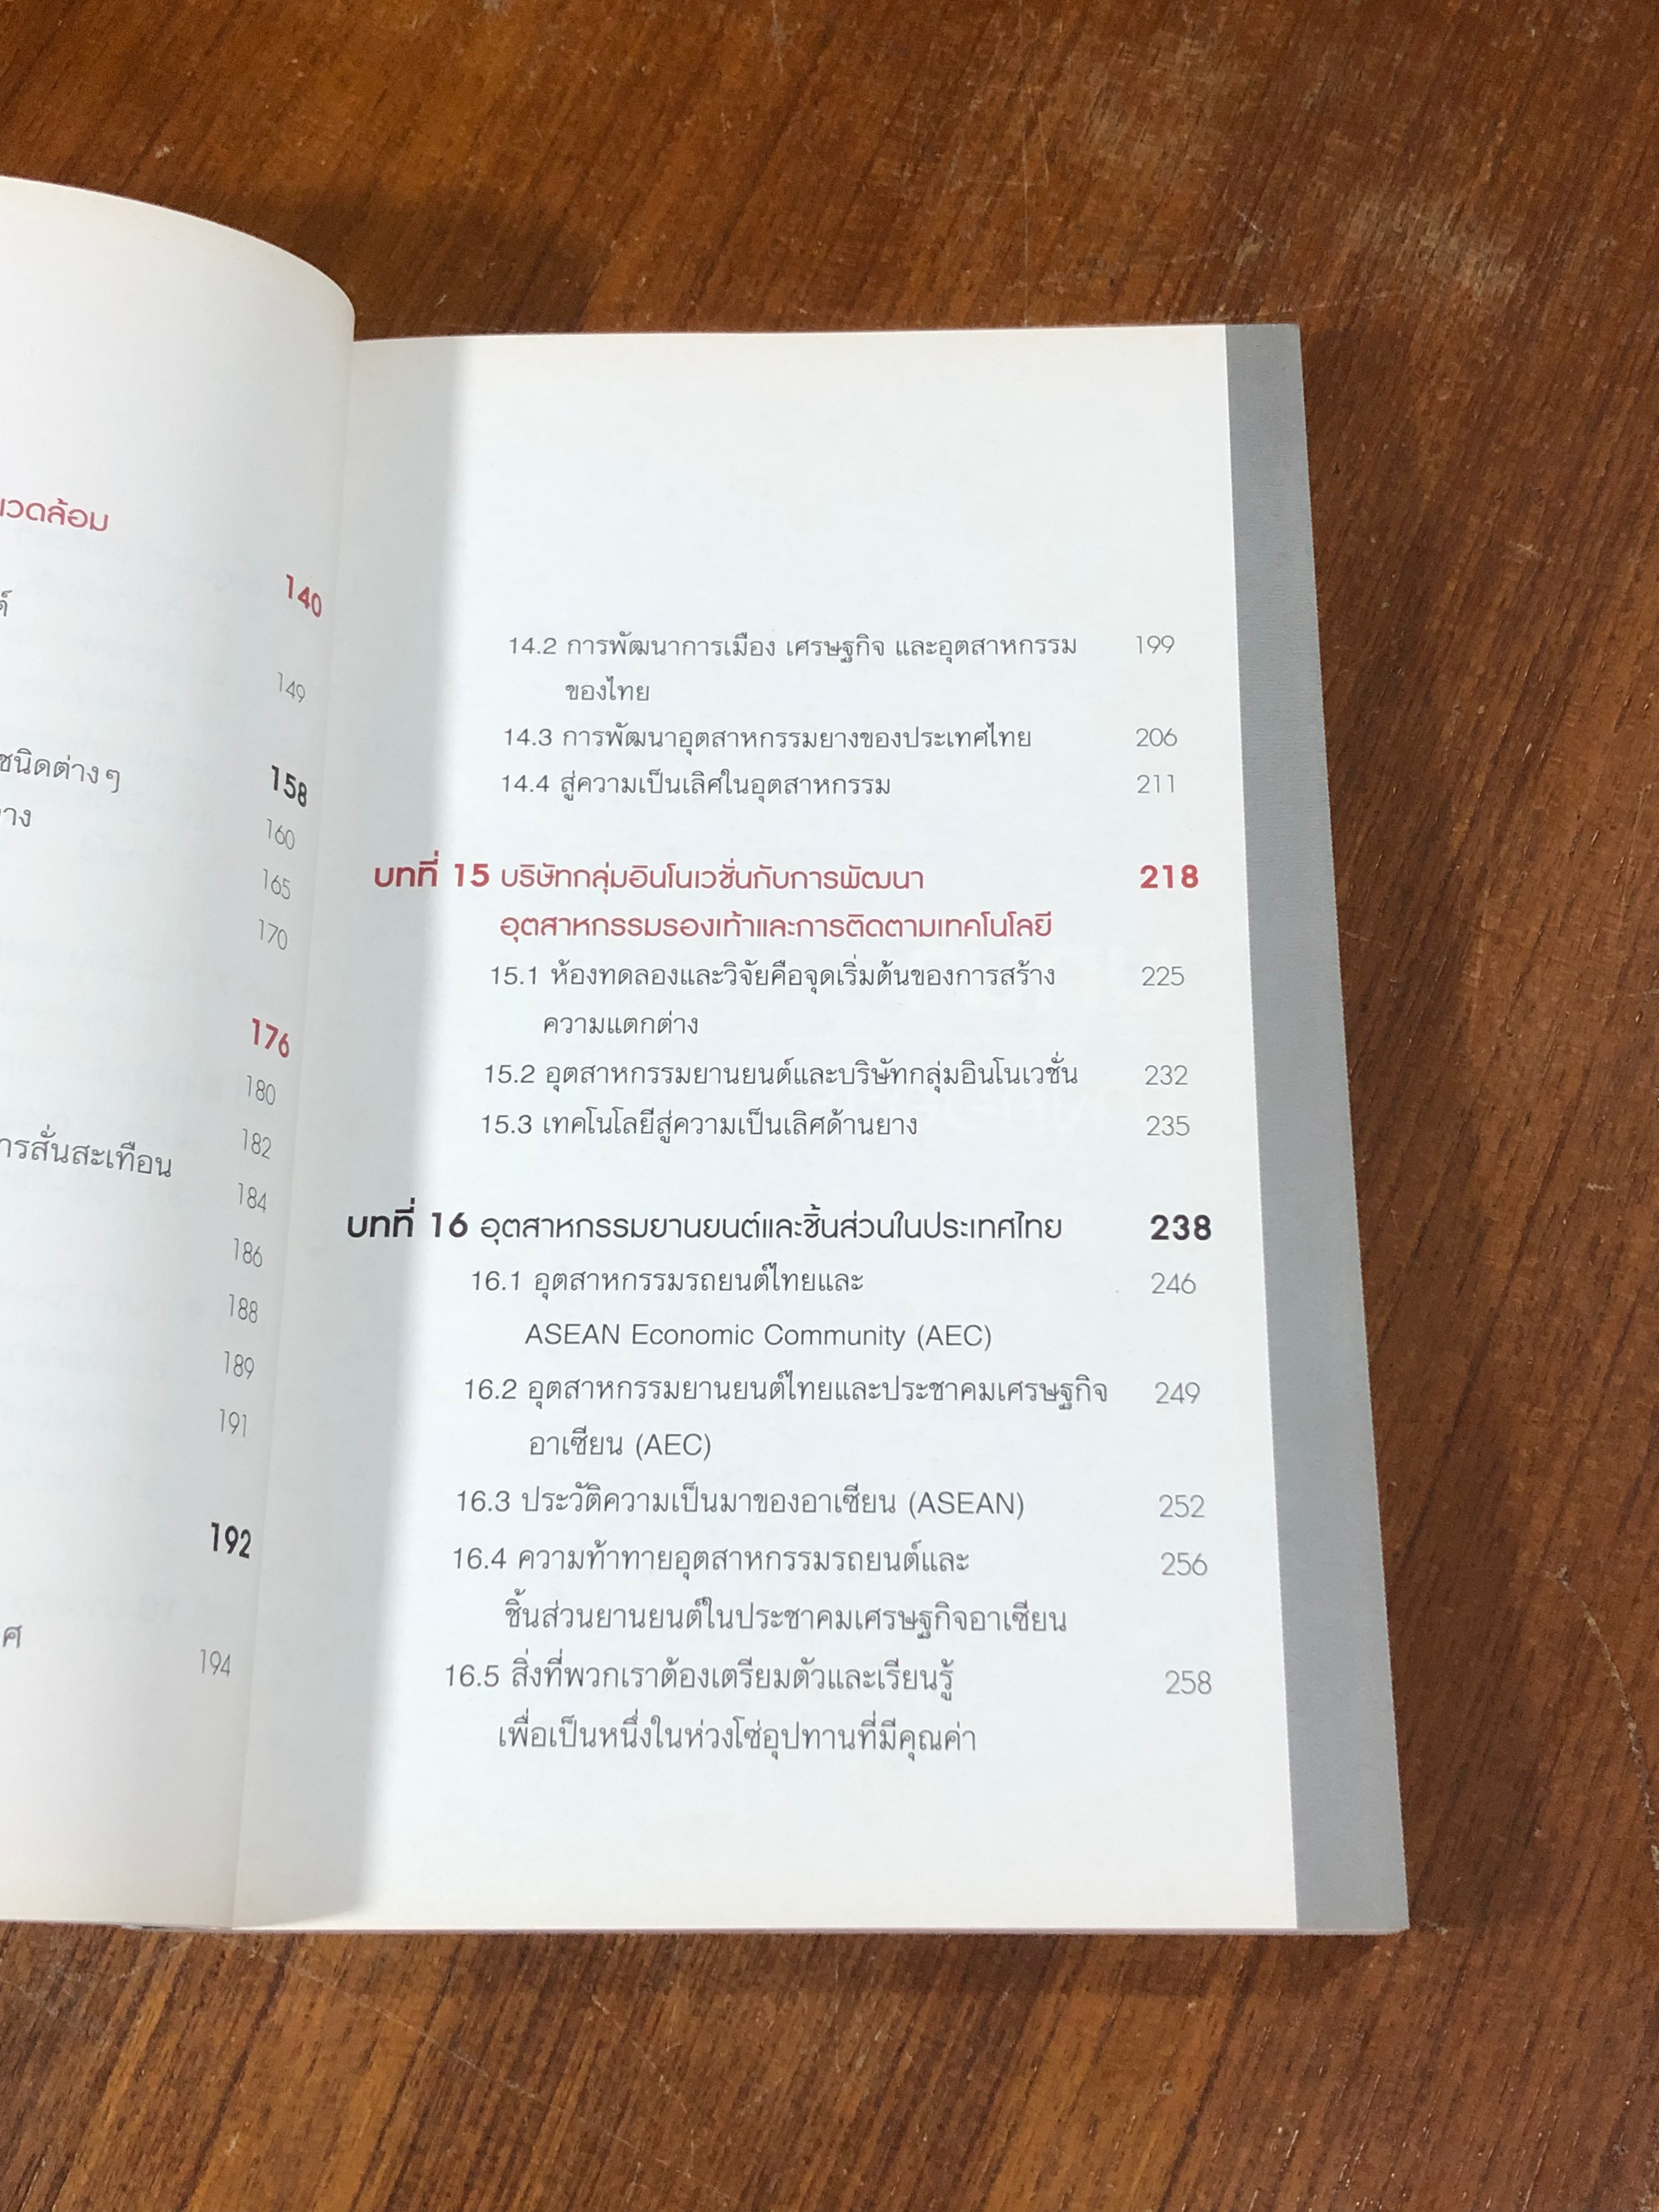 140
149
ชนิดต่างๆ 158
160
165
170
176
180
182
184
186
188
189
191
192
194
14.2 การพัฒนาการเมือง เศรษฐกิจ และอุตสาหกรรม 199
ของไทย
14.3 การพัฒนาอุตสาหกรรมยางของประเทศไทย 206
14.4 สู่ความเป็นเลิศในอุตสาหกรรม 211
บทที่ 15 บริษัทกลุ่มอินโนเวชั่นกับการพัฒนา 218
อุตสาหกรรมรองเท้าและการติดตามเทคโนโลยี
15.1 ห้องทดลองและวิจัยคือจุดเริ่มต้นของการสร้าง 225
ความแตกต่าง
15.2 อุตสาหกรรมยานยนต์และบริษัทกลุ่มอินโนเวชั่น 232
15.3 เทคโนโลยีสู่ความเป็นเลิศด้านยาง 235
บทที่ 16 อุตสาหกรรมยานยนต์และชิ้นส่วนในประเทศไทย 238
16.1 อุตสาหกรรมรถยนต์ไทยและ 246
ASEAN Economic Community (AEC)
16.2 อุตสาหกรรมยานยนต์ไทยและประชาคมเศรษฐกิจ 249
อาเซียน (AEC)
16.3 ประวัติความเป็นมาของอาเซียน (ASEAN) 252
16.4 ความท้าทายอุตสาหกรรมรถยนต์และ 256
ชิ้นส่วนยานยนต์ในประชาคมเศรษฐกิจอาเซียน
16.5 สิ่งที่พวกเราต้องเตรียมตัวและเรียนรู้ 258
เพื่อเป็นหนึ่งในห่วงโซ่อุปทานที่มีคุณค่า